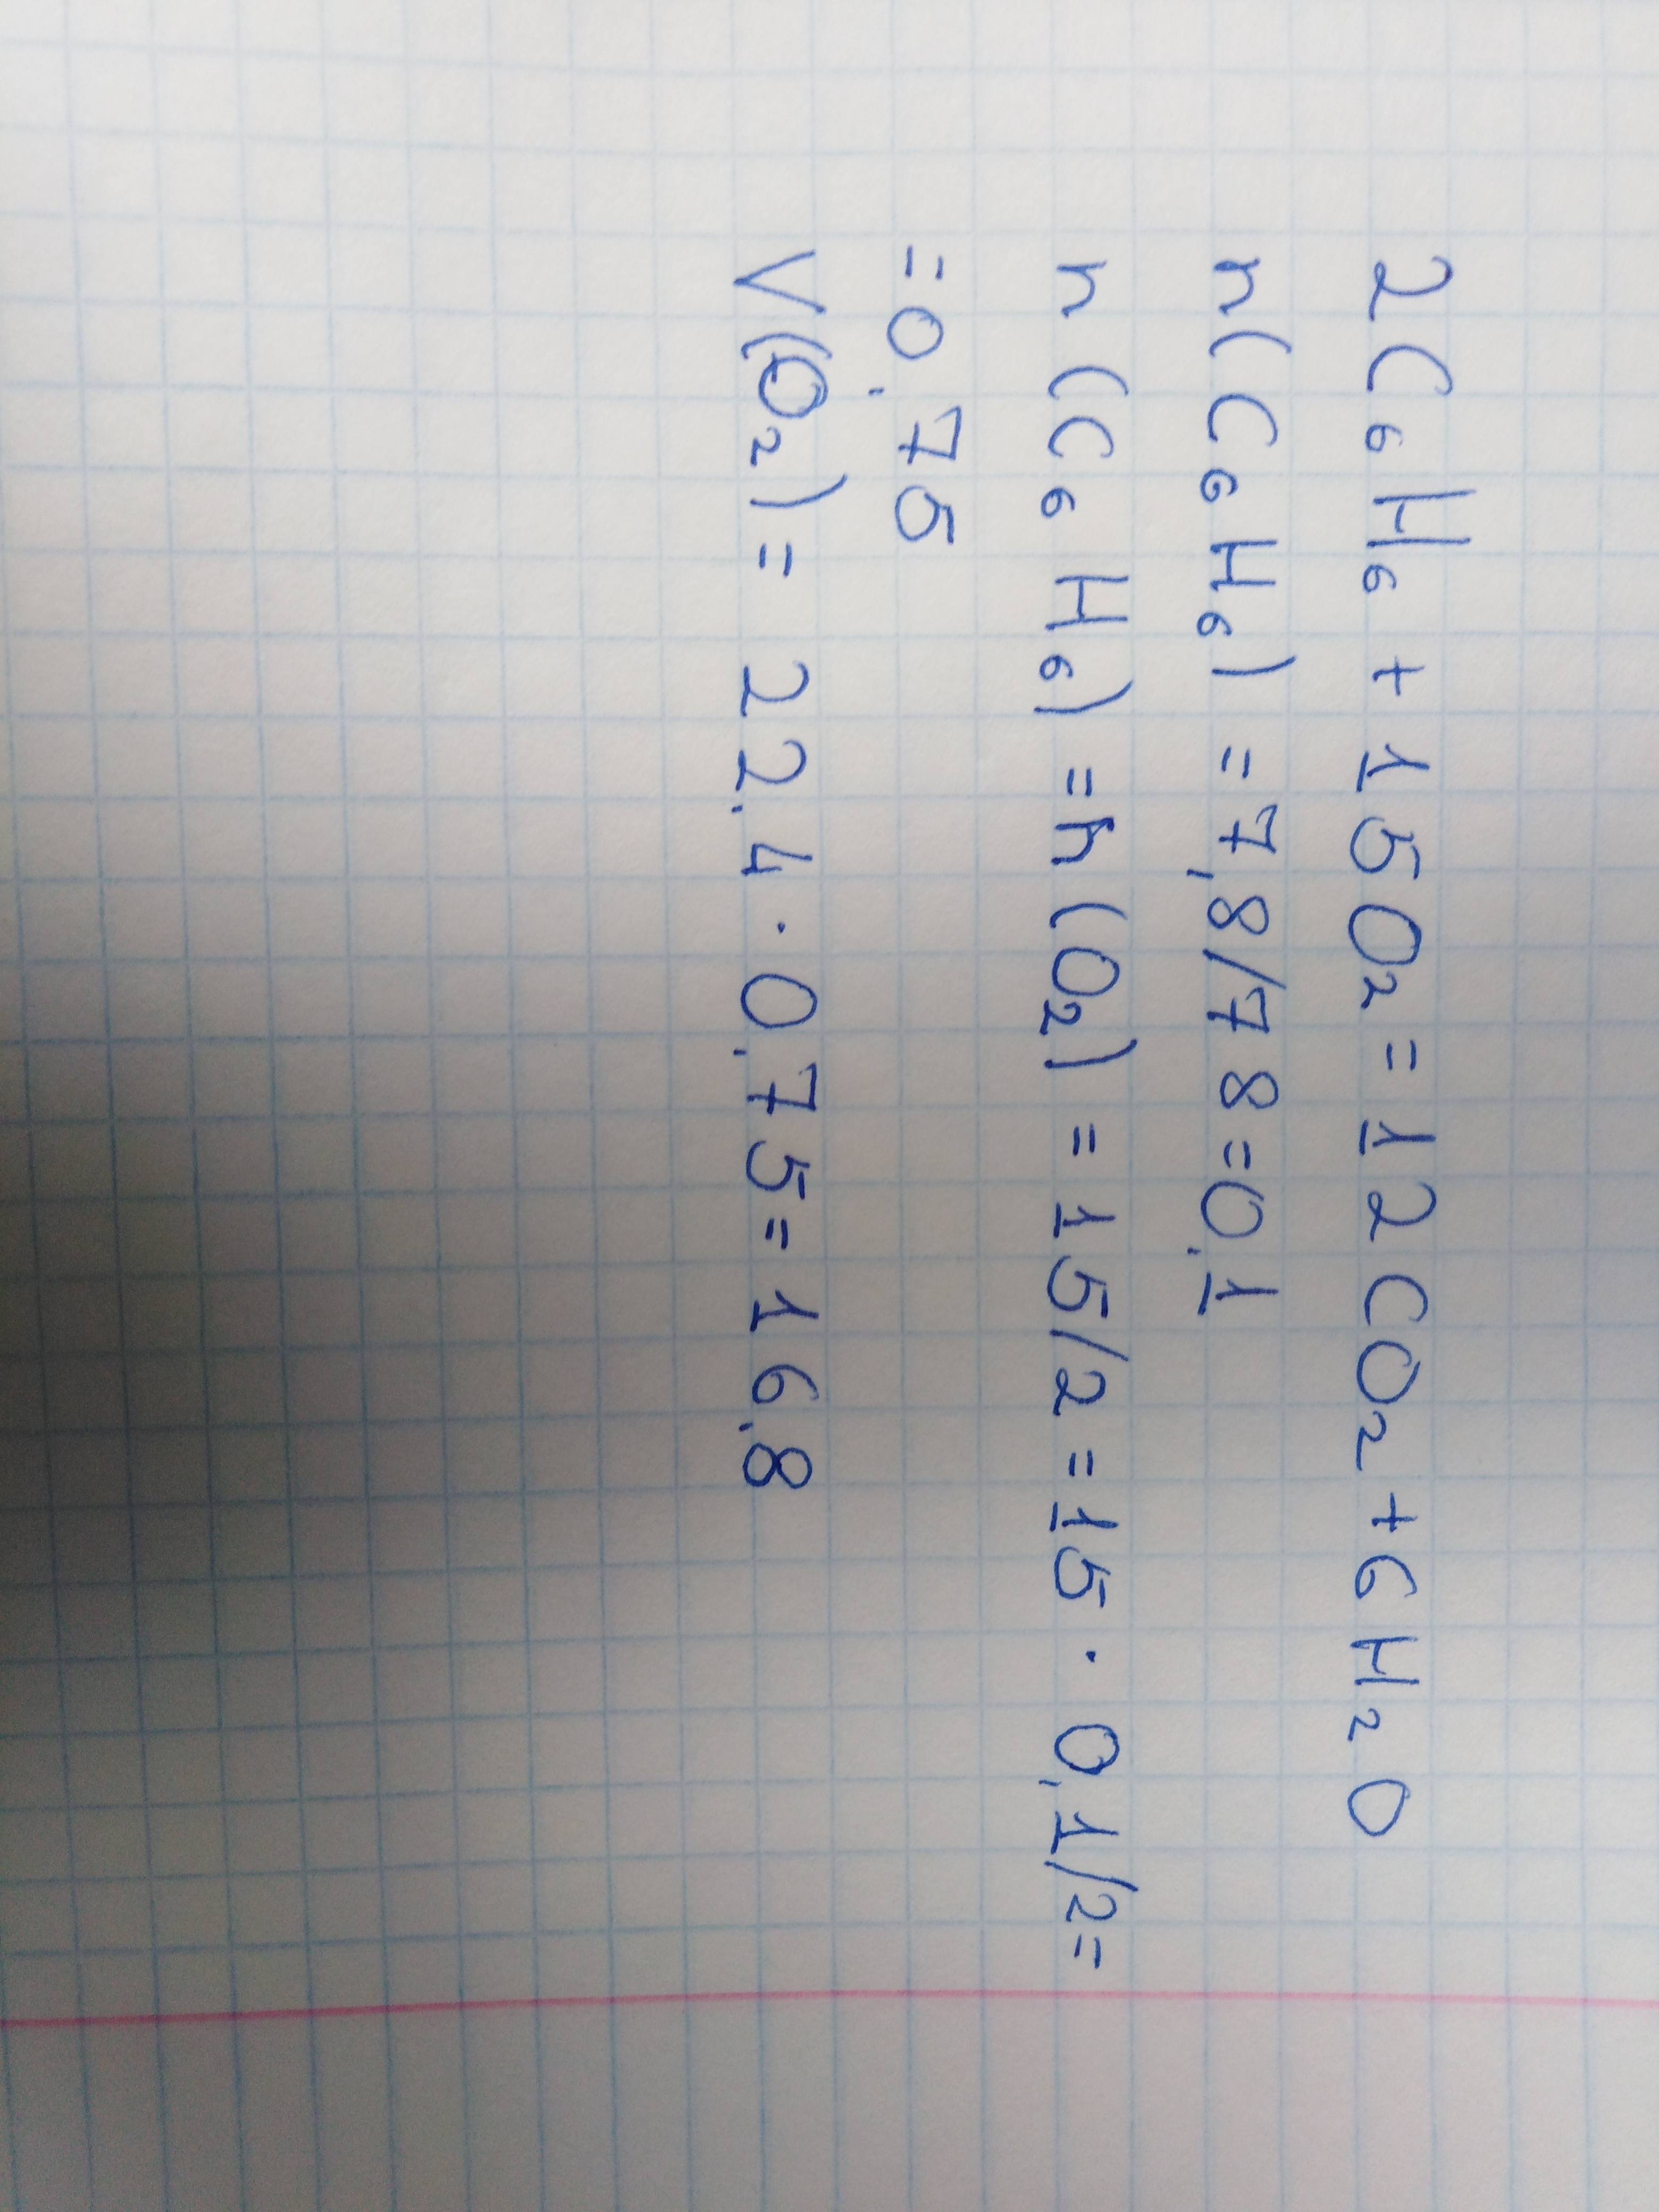 2C₆H₆ + 15O₂ = 12CO₂ + 6H₂O
n(C₆H₆) = 7,8/78 = 0,1
n(C₆H₆) = n(O₂) = 15/2 = 15 · 0,1/2 =
= 0,75
V(O₂) = 22,4 · 0,75 = 16,8